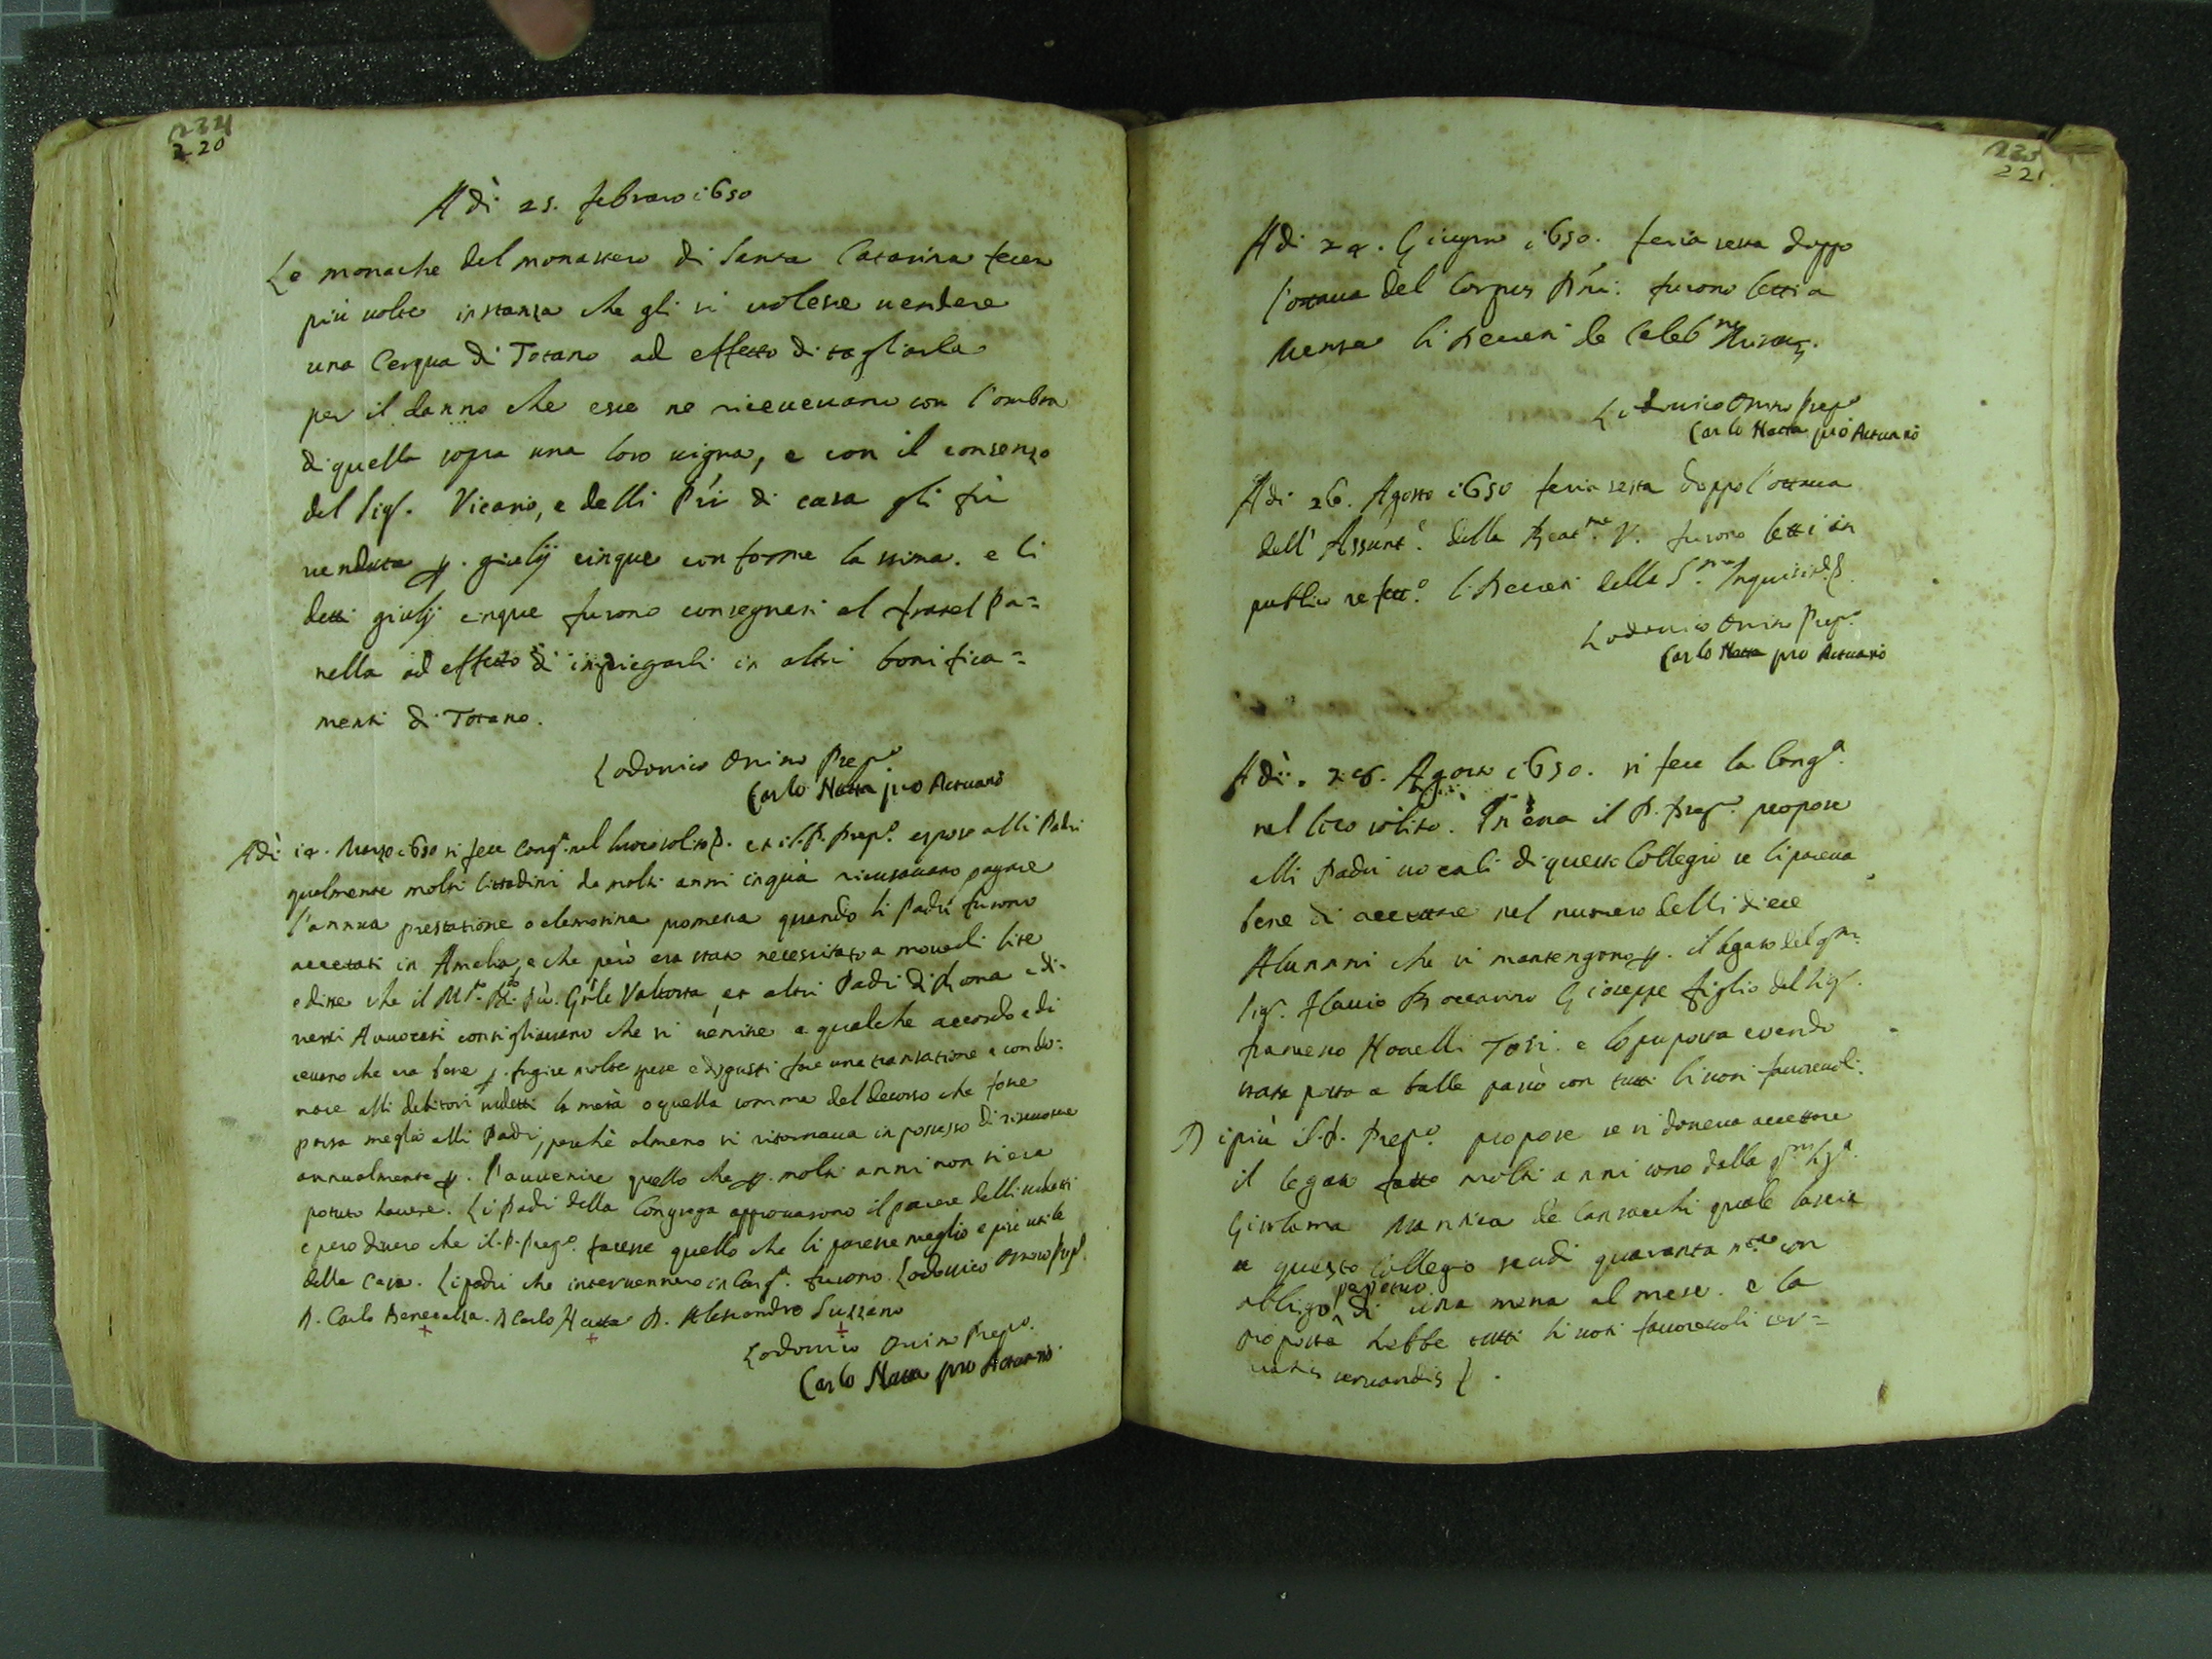 234
220
A dì 25. febraro i650
Le monache del monastero di Santa Catarina fecero
più uolte instanza che gli si uolesse uendere
una Cerqua di Totano ad effetto di tagliarla
per il danno che esse ne riceueuano con l'ombra
di quella sopra una loro uigna, e con il consenso
del Sigr. Vicario, e delli Pri di casa gli fù
uenduta p. giulij cinque conforme la stima. e li
detti giulij cinque furono consegnati al fratel Pa=
nella ad effetto di impiegarli in altri bonifica=
menti di Totano.
Lodouico Onino Prepo
Carlo Natta pro Actuario
A dì i4. Marzo i650 si fece Conga. nel luoco solito. et il P. Prepo. espose alli Padri
qualmente molti Cittadini da molti anni in quà ricusauano pagare
l'annua prestatione o elemosina promessa quando li Padri furono
accettati in Amelia, e che però era stato necessitato a mouerli lite
e disse che il M. Pre. Gnle Valtorta et altri Padri di Roma e di=
uersi Auuocati consigliauano che si uenisse a qualche accordo e di
ceuano che era bene p. fugire molte spese e disgusti fare una transatione e condo=
nare alli debitori sudetti la metà o quella somma del decorso che fosse
parsa meglio alli Padri, perchè almeno si ritornaua in possesso di riscuotere
annualmente p. l'auuenire quello che p. molti anni non si era
potuto hauere. Li Padri della Congrega approuarono il parere delli sudetti
e pero dissero che il P. Prepo. facesse quello che li paresse meglio e più utile
della Casa. Li padri che interuennero in Conga. furono. Lodouico Onino Prepo.
P. Carlo Beneualsa. P. Carlo Natta P. Alessandro Suzzano
Lodouico Onino Prepo.
Carlo Natta pro Actuario
235
221.
A di 24. Giugno i650. feria sesta doppo
l'ottaua del Corpus Dni. furono letti a
Mensa li Decreti de Celebne Missar.
Lodouico Onino Prepo
Carlo Natta pro Actuario
A di 26. Agosto i650 feria sesta doppo l'ottaua
dell' Assunt. della Beatme V. furono letti in
publico refett.o li Decreti della S.ma Inquisit.
Lodouico Onino Prep.
Carlo Natta pro Actuario
A dì. 28. Agosto i650. si fece la Conga.
nel loco solito. In essa il P. Prepo. propose
alli Padri uocali di questo Collegio se li pareua
bene di accettare nel numero delli diece
Alunni che si mantengono p. il legato del qm.
Sigr. Flauio Boccarino Gioseppe figlio del Sigr.
francesco Nouelli Tosi. e la proposta essendo
stata posta a balle passò con tutti li uoti fauoreuoli.
Di più il P. Prepo. propose se si doueua accettare
il legato fatto molti anni sono dalla qm Siga.
Girolama Mannica de Cansacchi quale lascia
a questo Collegio scudi quaranta con
obligo perpetuo di una messa al mese. e la
proposta hebbe tutti li uoti fauoreuoli ser=
uatis seruandis.